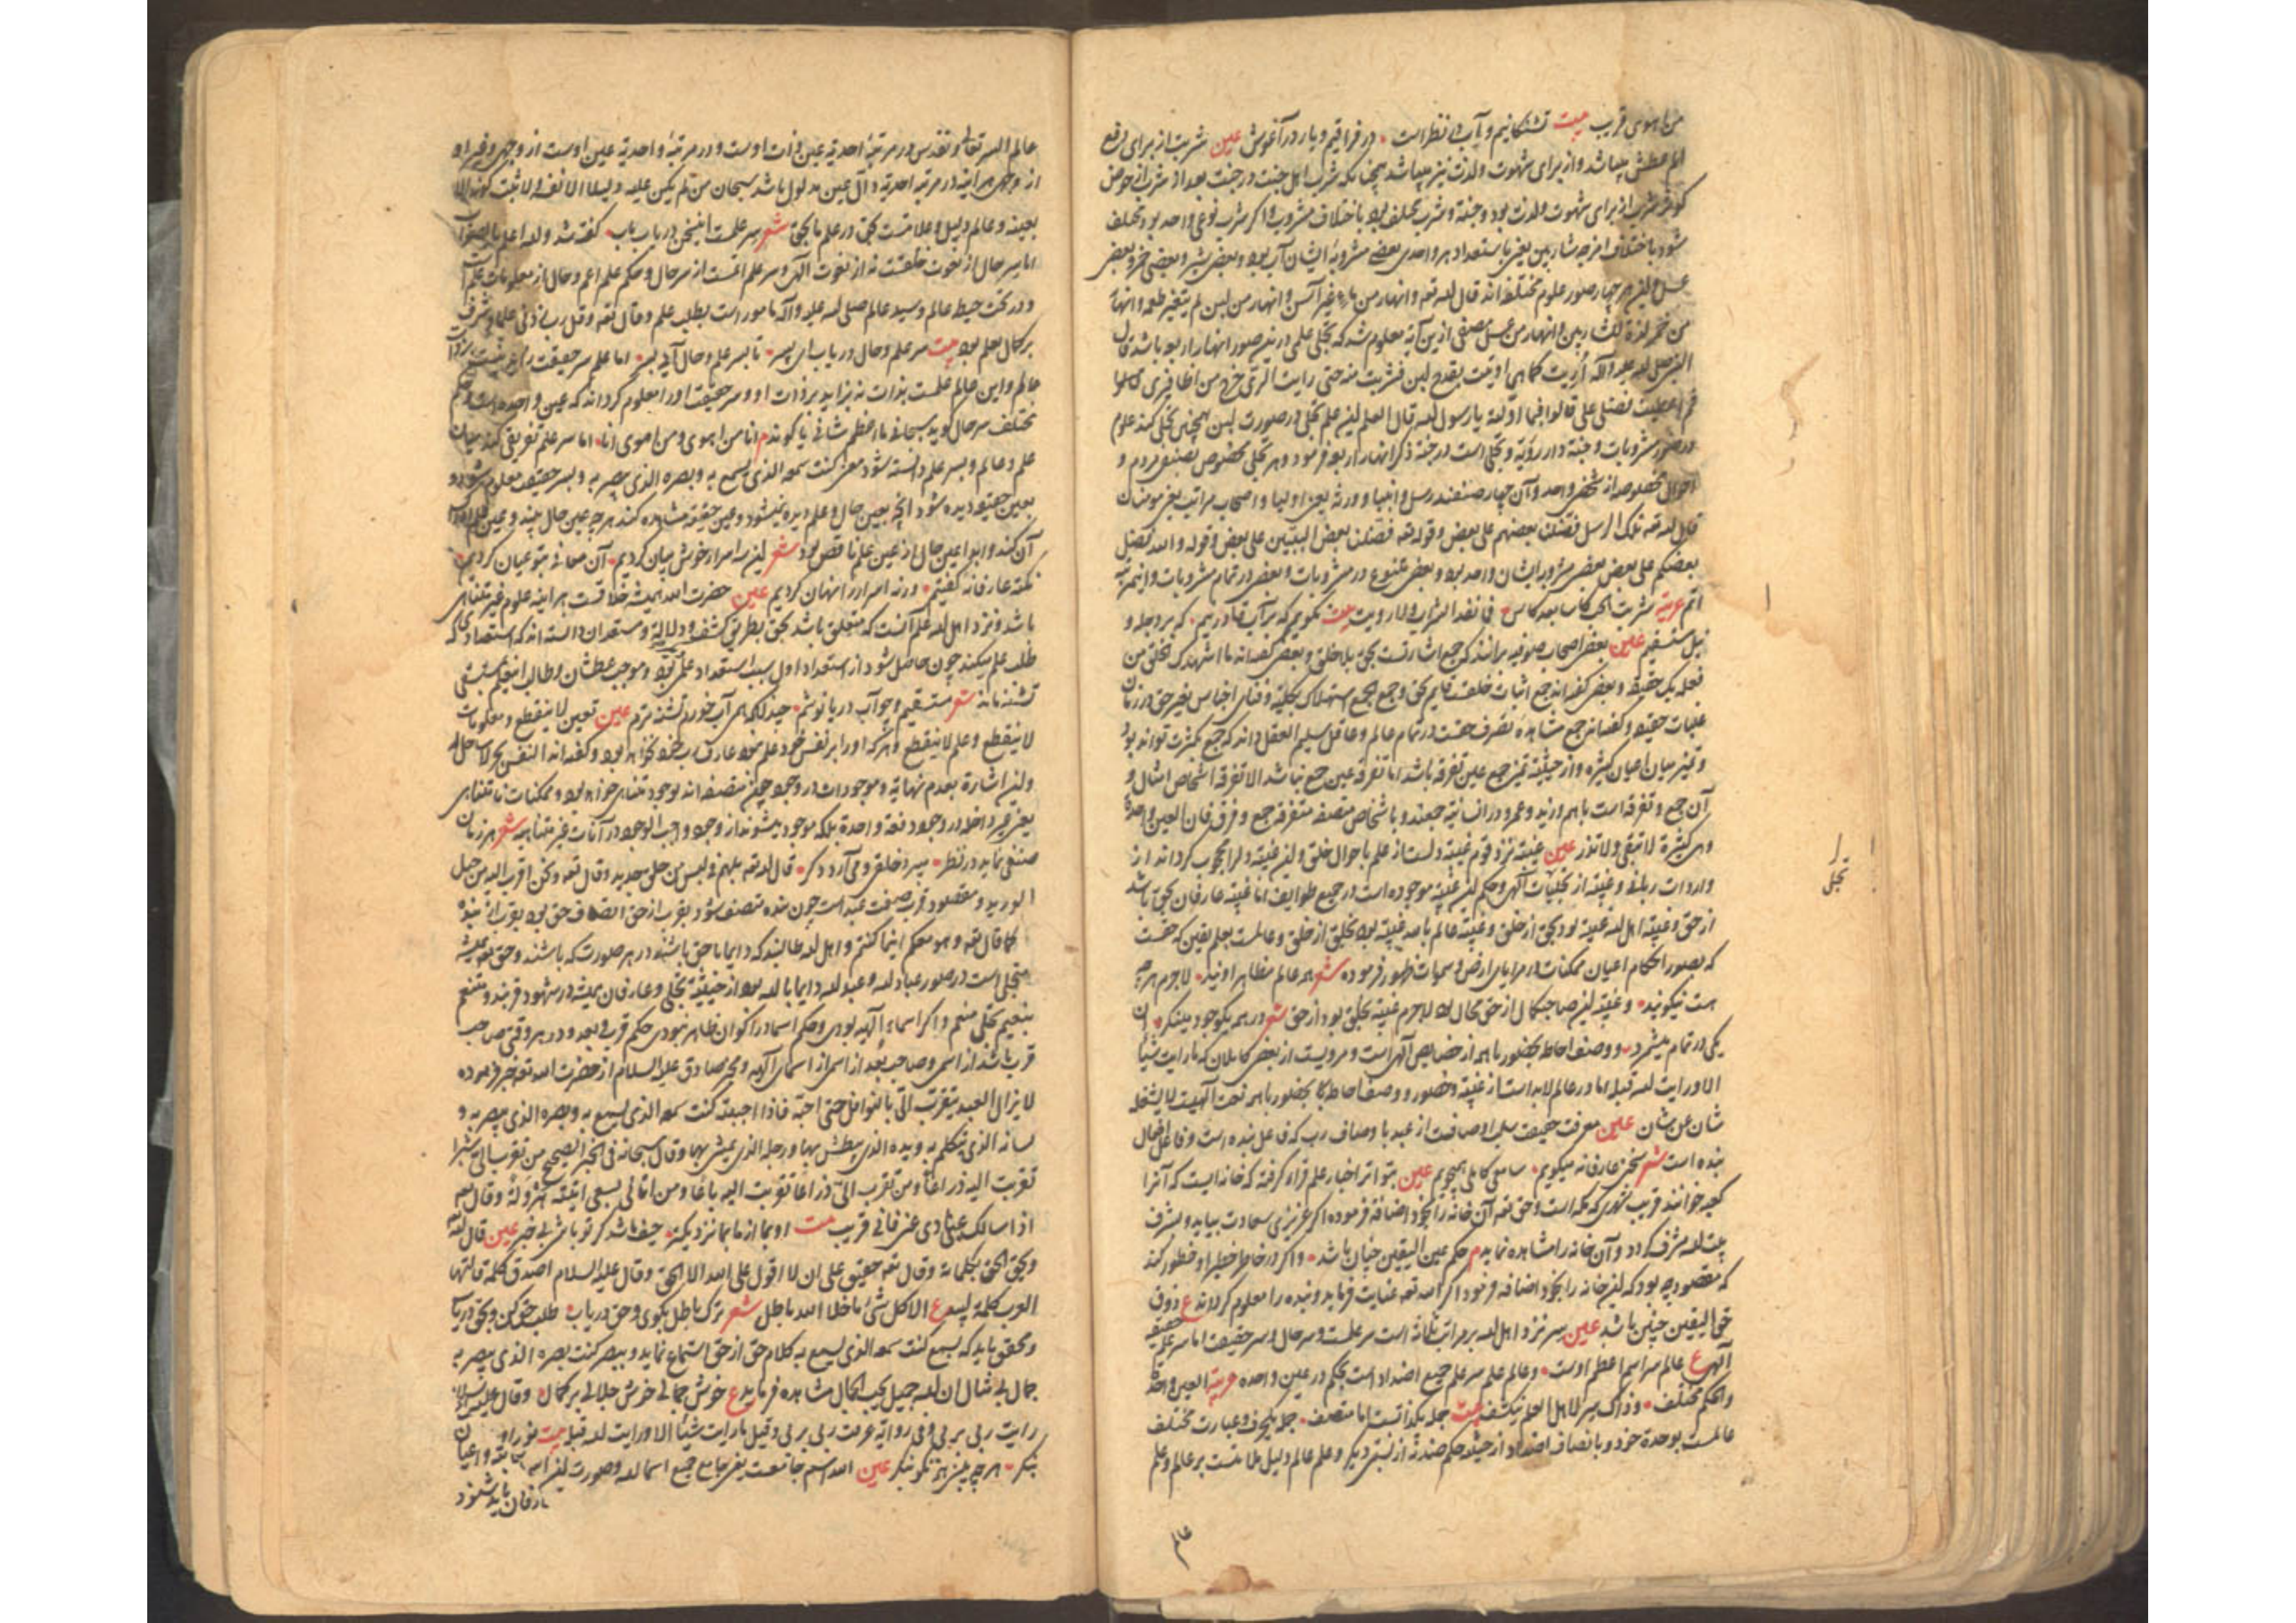 من اهوی قریب بیت تشنکانیم و آب در نظر است در فراقیم و یار در آغوش عین شرب از برای رفع
الم عطش میباشد و از برای شهوت و لذت نیز میباشد همچنانکه شرب اهل جنت در جنت بعد از شرب از حوض
کوثر شرب از برای شهوت و لذت بود و جنة و شرب مختلف بود باختلاف مشروب و اکر مشرب نوعی واحد بود مختلف
شود باختلاف امزجه شاربین یعنی باستعداد هر واحدی بعضی مشروبه ایشان آب بود و بعضی شیر و بعضی خمر و بعضی
عسل این هر چهار صور علوم مختلفه اند قال الله تعه و انهار من ماء غیر آسن و انهار من لبن لم یتغیر طعمه و انهار
من خمر لذة للشاربین و انهار من عسل مصفی ازین آیة معلوم شد که تجلی علمی درین صور انهار اربعه باشد قال
النبی صلی الله علیه و آله اریت کانی اوتیت بقدح لبن فشربت منه حتی رایت الری خرج من اظافیری
ثم اعطیت فضلی علی قالوا فما اولته یا رسول الله قال العلم این علم تجلی در صورت لبن همچنین تجلی کند علوم
در صور مشروبات و جنة دار رؤیة و تجلی است در جنة ذکر انهار اربعه فرمود و هر تجلی مخصوص بصنفی مردم و
احوال مخصوصه از شخص واحد و آن چهار صنفند رسل و انبیا و ورثه یعنی اولیا و اصحاب مراتب یعنی مومنان
قال الله تعه تلک الرسل فضلنا بعضهم علی بعض و قوله تعه فضلنا بعض النبیین علی بعض و قوله والله فضل
بعضکم علی بعض بعضی مشروب ایشان واحد بود و بعضی متنوع در مشروبات و بعضی در تمام مشروبات و این مرتبه
اتم عربیة شربت الحب کاسا بعد کاس فما نفد الشراب و لا رویت بیت نکویم که بر آب قادر نیم که بر دجله و
نیل مستسقیم عین بعضی اصحاب صوفیه برانند که جمع اشارتست بحق بلا خلق و بعضی کفته اند ما اشهدک الحق من
فعله بک حقیقة و بعضی کفته اند جمع اثبات خلقست قایم بحق و جمع الجمع استهلاک بکلیة و فنای احساس بغیر حق در زمان
غلبات حقیقه و کفته اند جمع مشاهده تصرف حقست در تمام عالم و عاقل سلیم العقل داند که جمع بکثرت تواند بود
و تمیز میان اعیان کثیره و از حیثیة تمیز جمع عین تفرقه باشد اما تفرقه عین جمع نباشد الا تفرقه اشخاص امثال و
آن جمع و تفرقه است باهم و زید و عمرو در انسانیة جمعند و باشخاص متصفه متفرقه جمع و فرق فان العین واحدة
وهی کثیرة لا تبقی و لا تذر عین غیبة نزد قوم غیبة دلست از علم باحوال خلق و این غیبة دلرا محجوب کرداند از
واردات ربانی و غیبة از تجلیات الهی و حکم این غیبة موجوده است در جمیع طوایف اما غیبة عارفان بحق باشد
از حق و غیبة اهل الله غیبة بود بحق از خلق و غیبة عالم بالله غیبة بود بخلق از خلق و عالمست بعلم یقین که حقست
که بصور احکام اعیان ممکنات در مرایای ارض و سموات ظهور فرموده شعر همه عالم مظاهر اویند لاجرم هرچه
هست نیکویند و غیبة این صاحبکمال از حق محال بود لاجرم غیبة بخلق بود از حق شعر در همه یکوجود مینکر ان
یکی در تمام میشمر و وصف احاطه بحضور باهمه از خصایص الهی است و مرویست از بعضی کاملان که ما رایت شیئا
الا و رایت الله قبله اما در عالم لابد است از غیبة و حضور و وصف احاطه کما بحضور باهمه نعت الهیست لا یشغله
شان عن شان عین معرفت حقیقت سلب اوصافست از عبد باوصاف رب که فاعل بنده است و فاعل افعال
بنده است شعر سخن عارفانه میکویم سامعی کاملی همی جویم عین بتواتر اخبار علم قراء کرفته که خانه ایست که آنرا
کعبه خوانند قریب شهری که مکه است و حق تعه آن خانه را بخود اضافه فرموده اکر عزیزی سعادت بیابد و بشرف
بیت الله مشرف کردد و آن خانه را مشاهده نماید م حکم عین الیقین چنان باشد و اکر در خاطر خطیر او خطور کند
که مقصود چه بود که این خانه را بخود اضافه فرمود اکر الله تعه عنایت فرماید و بنده را معلوم کرداند ع ذوق
حق الیقین چنین باشد عین سر نزد اهل الله بر مراتب ثلاثه است سر علمست و سر حال و سر حقیقت اما سر علم حقیقة
الهی ع عالم سر اسم اعظم اوست و عالم علم سر علم جمیع اضداد است بحکم در عین واحده عربیة العین واحدة
والحکم مختلف و ذاک سر لاهل العلم ینکشف بیت جمله یکذاتست اما متصف جمله یکحرف و عبارت مختلف
عالمست بوحدة خود و بانصاف اضداد از حیثیة حکم ضدی از نسبتی دیکر و علم عالم دلیل علامتست بر عالم و علم
عالم
تجلی
عالم السر تعالی و تقدس در مرتبهٔ احدیة عین ذات اوست و در مرتبهٔ واحدیة عین اوست از وجهی و غیر او
از وجهی هر آینه در مرتبه احدیة دال عین مدلول باشد سبحان من لم یکن علیه دلیلا الا نفه و لا ثبت کونه الا
بعینه و عالم دلیل و علامتست بحق در علم ما بحق شعر سر علمست اینسخن دریاب باب کفته شد والله اعلم بالصواب
اما سر حال از نعوت خلقست نه از نعوت الهی و سر علم اتمست از سر حال و حکم علم اعم و حال از معلومات علم است
و در تحت حیطه عالم و سید عالم صلی الله علیه و آله مامور است بطلب علم و قال تعه و قل رب زدنی علما و شرف
بر کمال بعلم بود بیت سر علم و حال دریاب ای پسر تا بسر علم و حال آیی بسر اما علم سر حقیقت
عالم و این عالم علمست بذات نه بزاید بر ذات او و سر حقیقت او را معلوم کرداند که عین واحده است و حکم
مختلف سر حال کوید سبحانی ما اعظم شانی یا کوید م انا من اهوی و من اهوی انا اما سر علم تفریق کند میان
علم و عالم و بسر علم دانسته شود معنی کنت سمعه الذی یسمع به و بصره الذی یبصر به و بسر حقیقة معلوم شود و
بعین حقیقة دیده شود آنچه بعین حال و علم دیده نمیشود و عین حقیقة مشاهده کند هرچه عین حال بیند و عین علم ادراک
آن کند و ابدا عین حال از عین علم ناقص بود شعر این سه اسرار خوش بیان کردیم آن معانی بتو عیان کردیم
نکته عارفانه کفتیم ورنه اسرار را نهان کردیم عین حضرت الله همیشه خلاقست هر آینه علوم غیر متناهی
باشد و نزد اهل الله علم آنست که متعلق باشد بحق بطریق کشف و دلالة و مستعدان دانسته اند که استعدادی که
طلب علم میکند چون حاصل شود از استعداد اول سبب استعداد علمی بود و موجب عطشان و طالب این علم مستسقی
تشنه ماند شعر مستسقیم و چو آب دریا نوشم چندانکه همی آب خورم تشنه ترم عین تعین لا ینقطع و معلومات
لا ینقطع و علم لا ینقطع و هر که او را بر نفس خود علم بود عارف رب خود نخواهد بود و کفته اند النفس بحر لا ساحل له
و این اشارة بعدم نهایة و موجودات در وجود چون متصفند بوجود متناهی خواهد بود و ممکنات نامتناهی
یعنی غیر داخله در وجود دفعة واحدة بلکه موجود میشوند از وجود واجب الوجود در آنات غیر متناهیه شعر هر زمان
صنفی نماید در نظر میبرد خلقی و می آرد دکر قال الله تعه بل هم فی لبس من خلق جدید و قال تعه و نحن اقرب الیه من حبل
الورید و مقصود قرب صفت عبد است چون بنده متصف شود بقرب از حق اتصاف حق بود بقرب از بنده
کما قال تعه و هو معکم اینما کنتم و اهل الله طالبند که دایما با حق باشند در هر صورت که باشند و حق تعه همیشه
متجلی است در صور عباد الله و عبد الله دایما با الله بود از حیثیة تجلی و عارفان همیشه در شهود قربند و متنعم
بنعیم تجلی منعم و اکر اسماء الهیه نبودی و حکم اسما در اکوان ظاهر نبودی حکم قرب و بعد و در هر وقتی صاحب
قرب باشد از اسمی و صاحب بعد از اسمی از اسمای الهیه و مخبر صادق علیه السلام از حضرت الله تعه خبر فرموده
لا یزال العبد یتقرب الی بالنوافل حتی احبه فاذا احببته کنت سمعه الذی یسمع به و بصره الذی یبصر به و
لسانه الذی یتکلم به و یده الذی یبطش بها و رجله الذی یمشی بها و قال سبحانه فی الخبر الصحیح من تقرب الی شبرا
تقربت الیه ذراعا و من تقرب الی ذراعا تقربت الیه باعا و من اتانی یسعی اتیته هرولة و قال تعه
اذا سالک عبادی عنی فانی قریب بیت او بما از ما بما نزدیکتر حیف باشد کر تو باشی بی خبر عین قال الله
و یحق الحق بکلماته و قال تعه حقیق علی ان لا اقول علی الله الا الحق و قال علیه السلام اصدق کلمة قالتها
العرب کلمة لبید ع الا کل شیئ ما خلا الله باطل شعر ترک باطل بکوی و حق دریاب طلب حق کن و بحق دریاب
و محقق باید که بسمع کنت سمعه الذی یسمع به کلام حق از حق استماع نماید و ببصر کنت بصره الذی یبصر به
جمال بی مثال ان الله جمیل یحب الجمال مشاهده فرماید ع خوش جمالی خوش جلالی بر کمال و قال علیه السلام
رایت ربی بربی و فی روایة عرفت ربی بربی و قیل ما رایت شیئا الا و رایت الله قبله بیت نور او
بنکر هرچه بینی همه نکو بنکر عین الله اسم جامعست یعنی جامع جمیع اسما الله و صورت این اسم
عارفان باید شنود